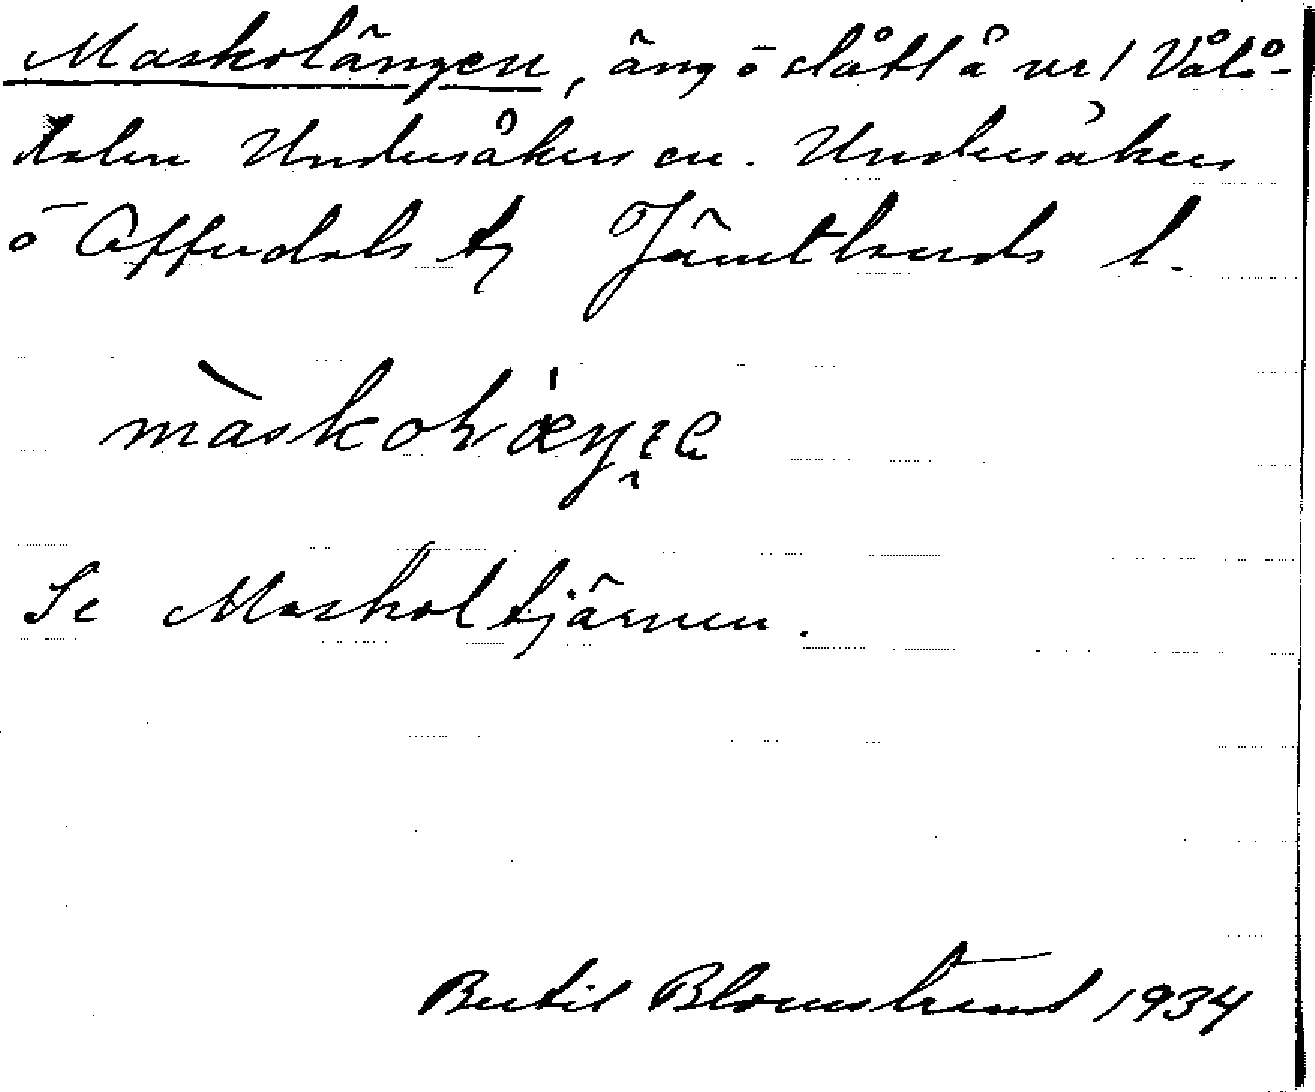 Maskolängen, äng ö slått å vid Vålå-
dalen Undersåkers sn. Undersåkers
ö Offerdals tg Jämtlands l.
Se Maskoltjärnen.
Bertil Blomstrand 1934